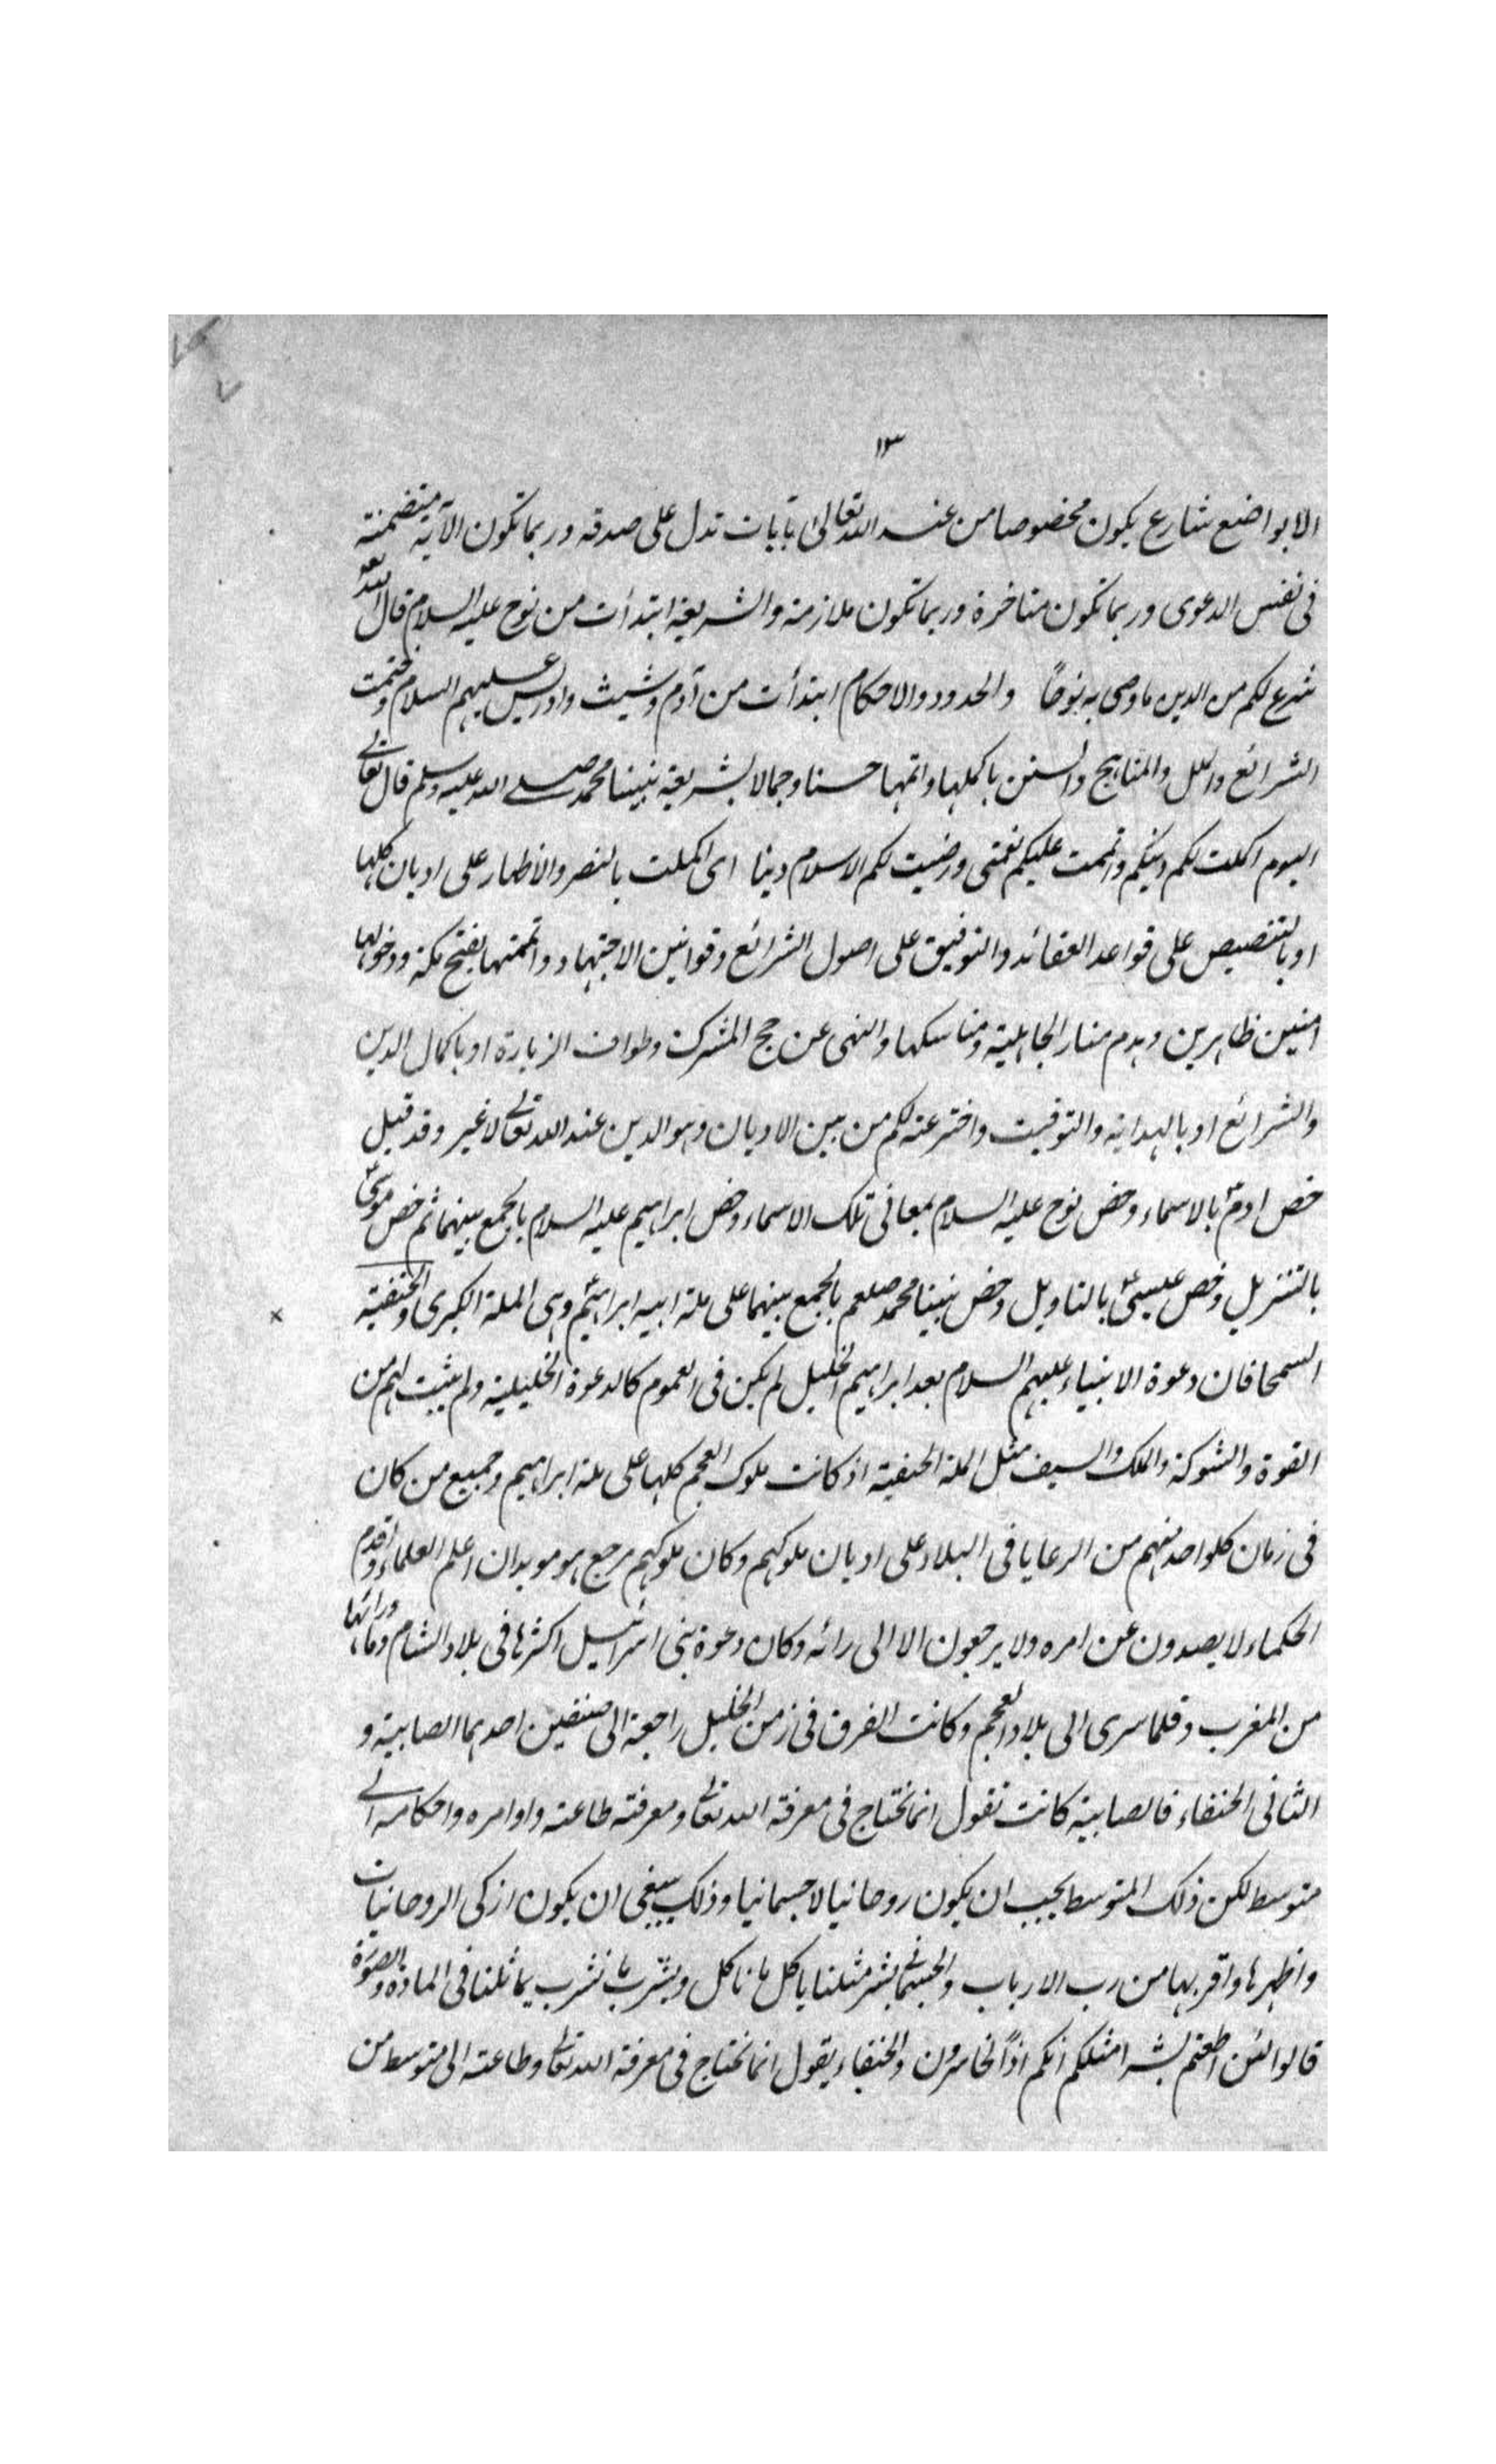 ١٣
الا بواضع شارع يكون مخصوصا من عند الله تعالى بآيات تدل على صدقه وربما تكون الآية متضمنة
فى نفس الدعوى وربما تكون متاخرة وربما تكون ملازمة والشريعة ابتدأت من نوح عليه السلام قال الله تعه
شرع لكم من الدين ما وصى به نوحاً والحدود والاحكام ابتدأت من آدم وشيث وادريس عليهم السلام وختمت
الشرائع والملل والمناهج والسنن باكملها واتمها حسنا وجمالا بشريعة نبينا محمد صلے الله عليه وسلم قال تعالے
اليوم اكملت لكم دينكم واتممت عليكم نعمتى ورضيت لكم الاسلام دينا اى اكملت بالنصر والاظهار على اديان كلها
او بالتنصيص على قواعد العقائد والتوفيق على اصول الشرائع وقوانين الاجتهاد واتممتها بفتح مكة ودخولها
امنين ظاهرين وهدم منار الجاهلية ومناسكها والنهى عن حج المشرك وطواف الزيارة او باكمال الدين
والشرائع او بالهداية والتوفيت واخترعته لكم من بين الاديان وهو الدين عند الله تعالے لا غير وقد قيل
خص ادمؑ بالاسماء وخص نوح عليه السلام بمعانى تلك الاسماء وخص ابراهيم عليه السلام بالجمع بينهما ثم خص موسىؑ
بالتنزيل وخص عيسىؑ بالتاويل وخص نبينا محمد صلعم بالجمع بينهما على ملة ابيه ابراهيمؑ وهى الملة الكبرى والحنفية
السمحا فان دعوة الانبياء عليهم السلام بعد ابراهيم الخليل لم يكن فى العموم كالدعوة الخليلية ولم يثبت لهم من
القوة والشوكة والملك والسيف مثل الملة الحنيفية اذ كانت ملوك العجم كلها على ملة ابراهيم وجميع من كان
فى زمان كلواحد منهم من الرعايا فى البلاد على اديان ملوكهم وكان ملوكهم مرجع هو موبدان اعلم العلماء واقدم
الحكماء لا يصدون عن امره ولا يرجعون الا الى رائه وكان دعوة بنى اسرائيل اكثرها فى بلاد الشام وما ورائها
من المغرب وقلما سرى الى بلاد العجم وكانت الفرق فى زمن الخليل راجعة الى صنفين احدهما الصابية و
الثانى الحنفاء فالصابية كانت تقول انا نحتاج فى معرفة الله تعالے ومعرفة طاعته واوامره واحكامه الے
متوسط لكن ذلك المتوسط يجب ان يكون روحانيا لا جسمانيا وذلك ينبغى ان يكون ازكى الروحانيات
واظهرها واقربها من رب الارباب والجسمانى بشر مثلنا ياكل مما ناكل ويشرب مما نشرب يماثلنا فى المادة والصورة
قالوا لئن اطعتم بشرا مثلكم انكم اذاً لخاسرون والحنفاء يقول انا نحتاج فى معرفة الله تعالے وطاعته الى متوسط من